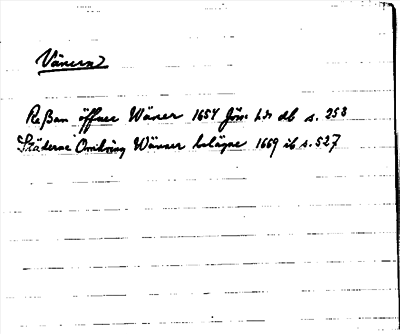 Vänern
Reßan öffver Wäner 1654 Jön: hdr db s. 253
Städerne Omkring Wänner belägne 1669 ib s. 527